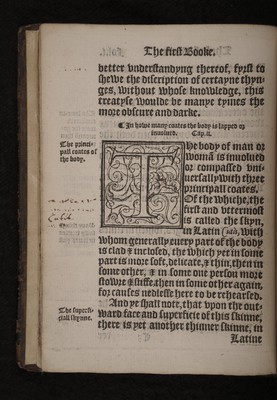 The first Booke.
better vnderstandyng therof, fyrst to
shewe the discription of certayne thyn-
ges, without whose knowledge, this
treatyse woulde be manye tymes the
more obscure and darke.
¶ In howe many coates the body is lapped or
inuolued. Cap. ii.
The princi-
pall coates of
the body.
The body of man or
womã is inuolued
or compassed vni-
uersally with three
principall coates.
Of the whiche, the
first and vttermost
is called the skyn,
in Latin Cutis, with
whom generally euery part of the body
is clad & inclosed, the which yet in some
part is more soft, delicate, & thin, then in
some other, & in some one person more
stowre & stiffe, then in some other again,
for causes nedlesse here to be rehearsed.
The supersi-
ciall skynne.
And ye shall note, that vpon the out-
ward face and superficie of this skinne,
there is yet another thinner skinne, in
Latine